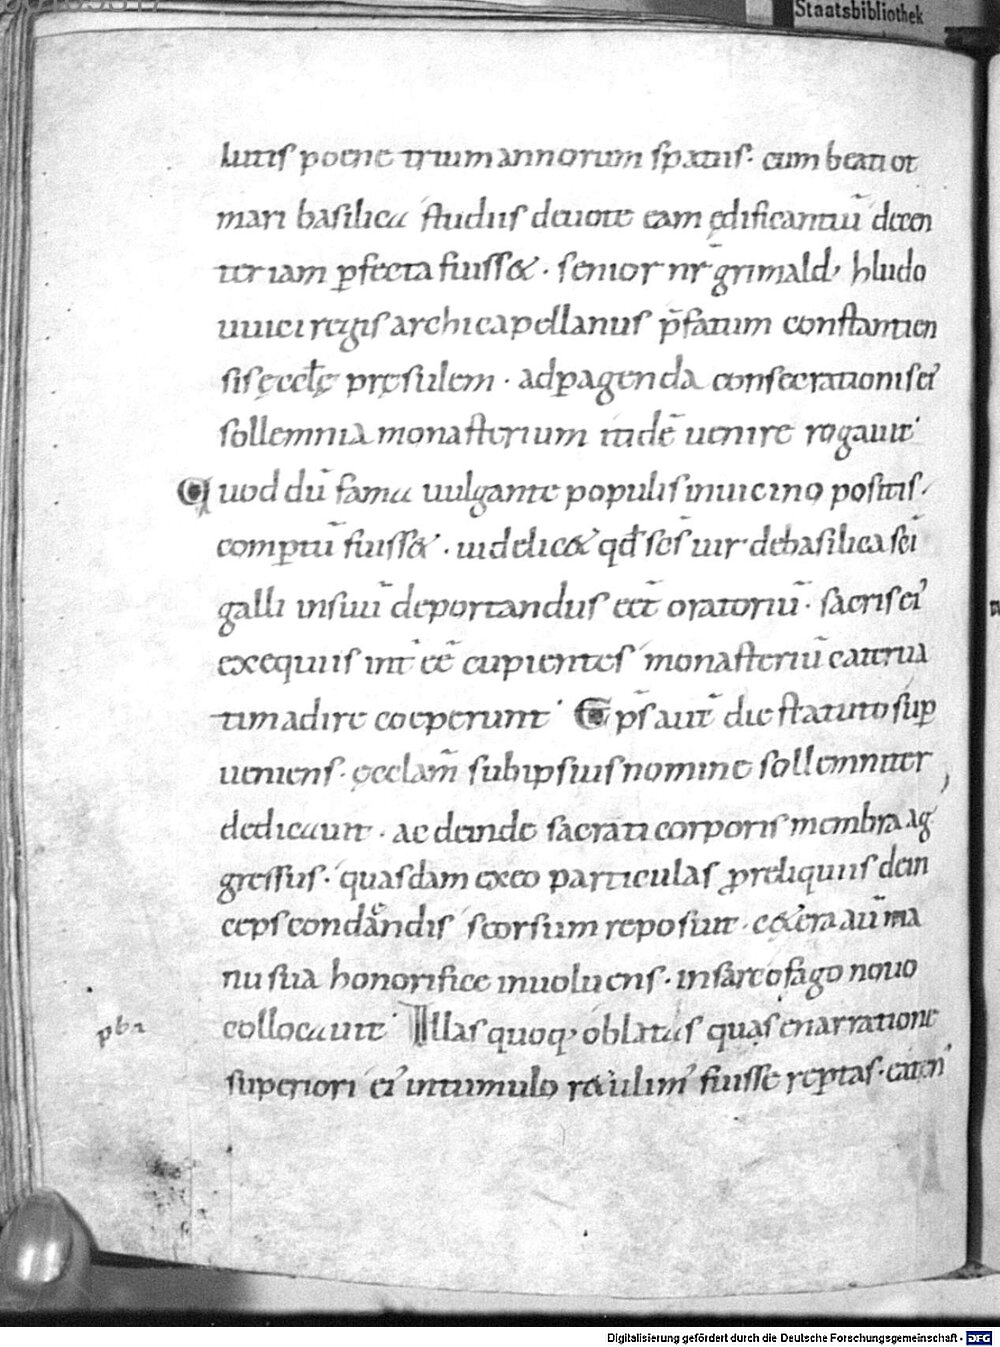 Staatsbibliothek
lutis poene trium annorum spatiis· cum beati ot
mari basilica studiis deuote eam ędificantiū decen
ter iam ꝑfecta fuiss&· senior nr̄ grimald' hludo
uuici regis archicapellanus p̄fatum constantien
sis ęccłę pręsulem· ad ꝑagenda consecrationis ei'
sollemnia monasterium itidē uenire rogauit·
Quod dū fama uulgante populis in uicino positis·
comꝑtū fuiss&· uidelic& qđ sc̄s uir de basilica sc̄i
galli in suū deportandus eēt oratoriū· sacris ei'
exequiis int̄ēē cupientes monasteriū cateruа
tim adire coeperunt· Ep̄s aut̄ die statuto suꝑ
ueniens· ęcclam̄ sub ipsius nomine sollemniter
dedicauit· ac deinde sacrati corporis membra ag
gressus· quasdam ex eo particulas ꝓ reliquiis dein
ceps condendis seorsum reposuit· c&era aū ma
nu sua honorifice inuoluens· in sarcofago nouo
collocauit· Illas quoq; oblatas quas enarratione
superiori ei' in tumulo r&ulim' fuisse reꝑtas·
pb2
Digitalisierung gefördert durch die Deutsche Forschungsgemeinschaft - DFG